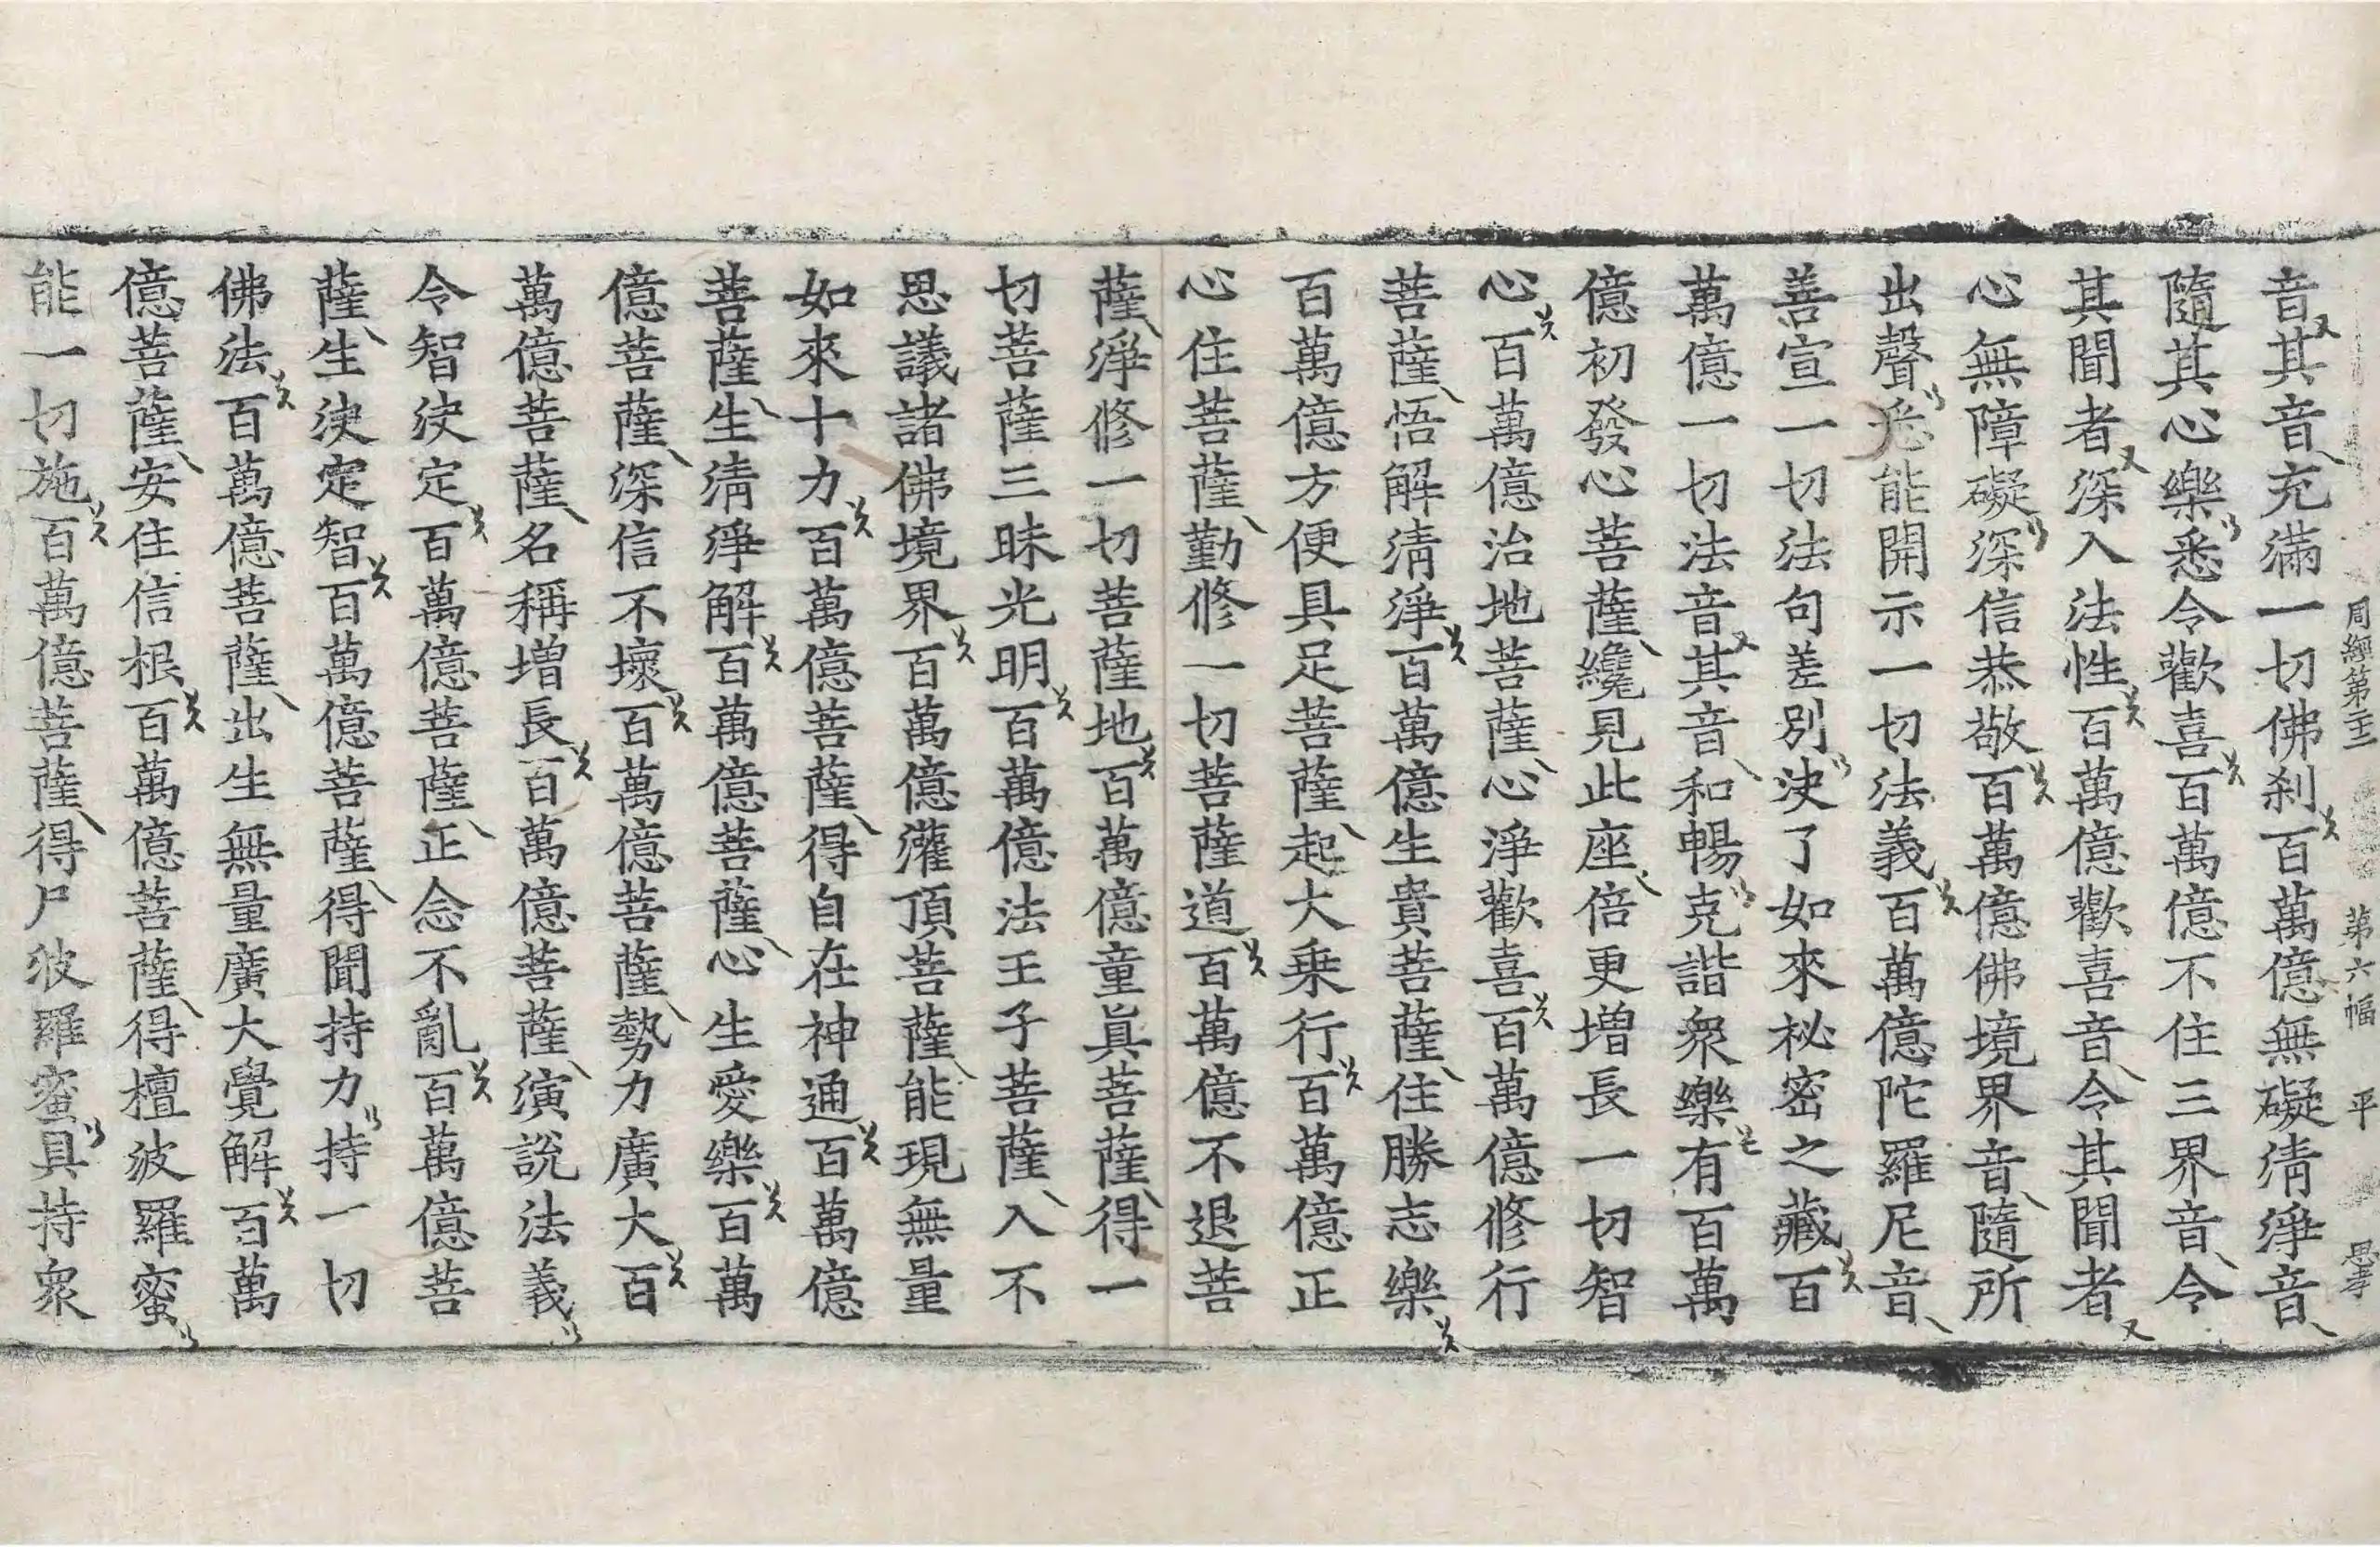 周經第二十二 第六幅 平 思孝
音其音充滿一切佛刹百萬億無礙淸淨音
隨其心樂悉令歡喜百萬億不住三界音令
其聞者深入法性百萬億歡喜音令其聞者
心無障礙深信恭敬百萬億佛境界音隨所
出聲悉能開示一切法義百萬億陀羅尼音
善宣一切法句差別決了如來祕密之藏百
萬億一切法音其音和暢克諧衆樂有百萬
億初發心菩薩纔見此座倍更增長一切智
心百萬億治地菩薩心淨歡喜百萬億修行
菩薩悟解淸淨百萬億生貴菩薩住勝志樂
百萬億方便具足菩薩起大乗行百萬億正
心住菩薩勤修一切菩薩道百萬億不退菩
薩淨修一切菩薩地百萬億童眞菩薩得一
切菩薩三昧光明百萬億法王子菩薩入不
思議諸佛境界百萬億灌頂菩薩能現無量
如來十力百萬億菩薩得自在神通百萬億
菩薩生淸淨解百萬億菩薩心生愛樂百萬
億菩薩深信不壞百萬億菩薩勢力廣大百
萬億菩薩名稱增長百萬億菩薩演說法義
令智決定百萬億菩薩正念不亂百萬億菩
薩生決定智百萬億菩薩得聞持力持一切
佛法百萬億菩薩出生無量廣大覺解百萬
億菩薩安住信根百萬億菩薩得檀波羅蜜
能一切施百萬億菩薩得尸波羅蜜具持衆